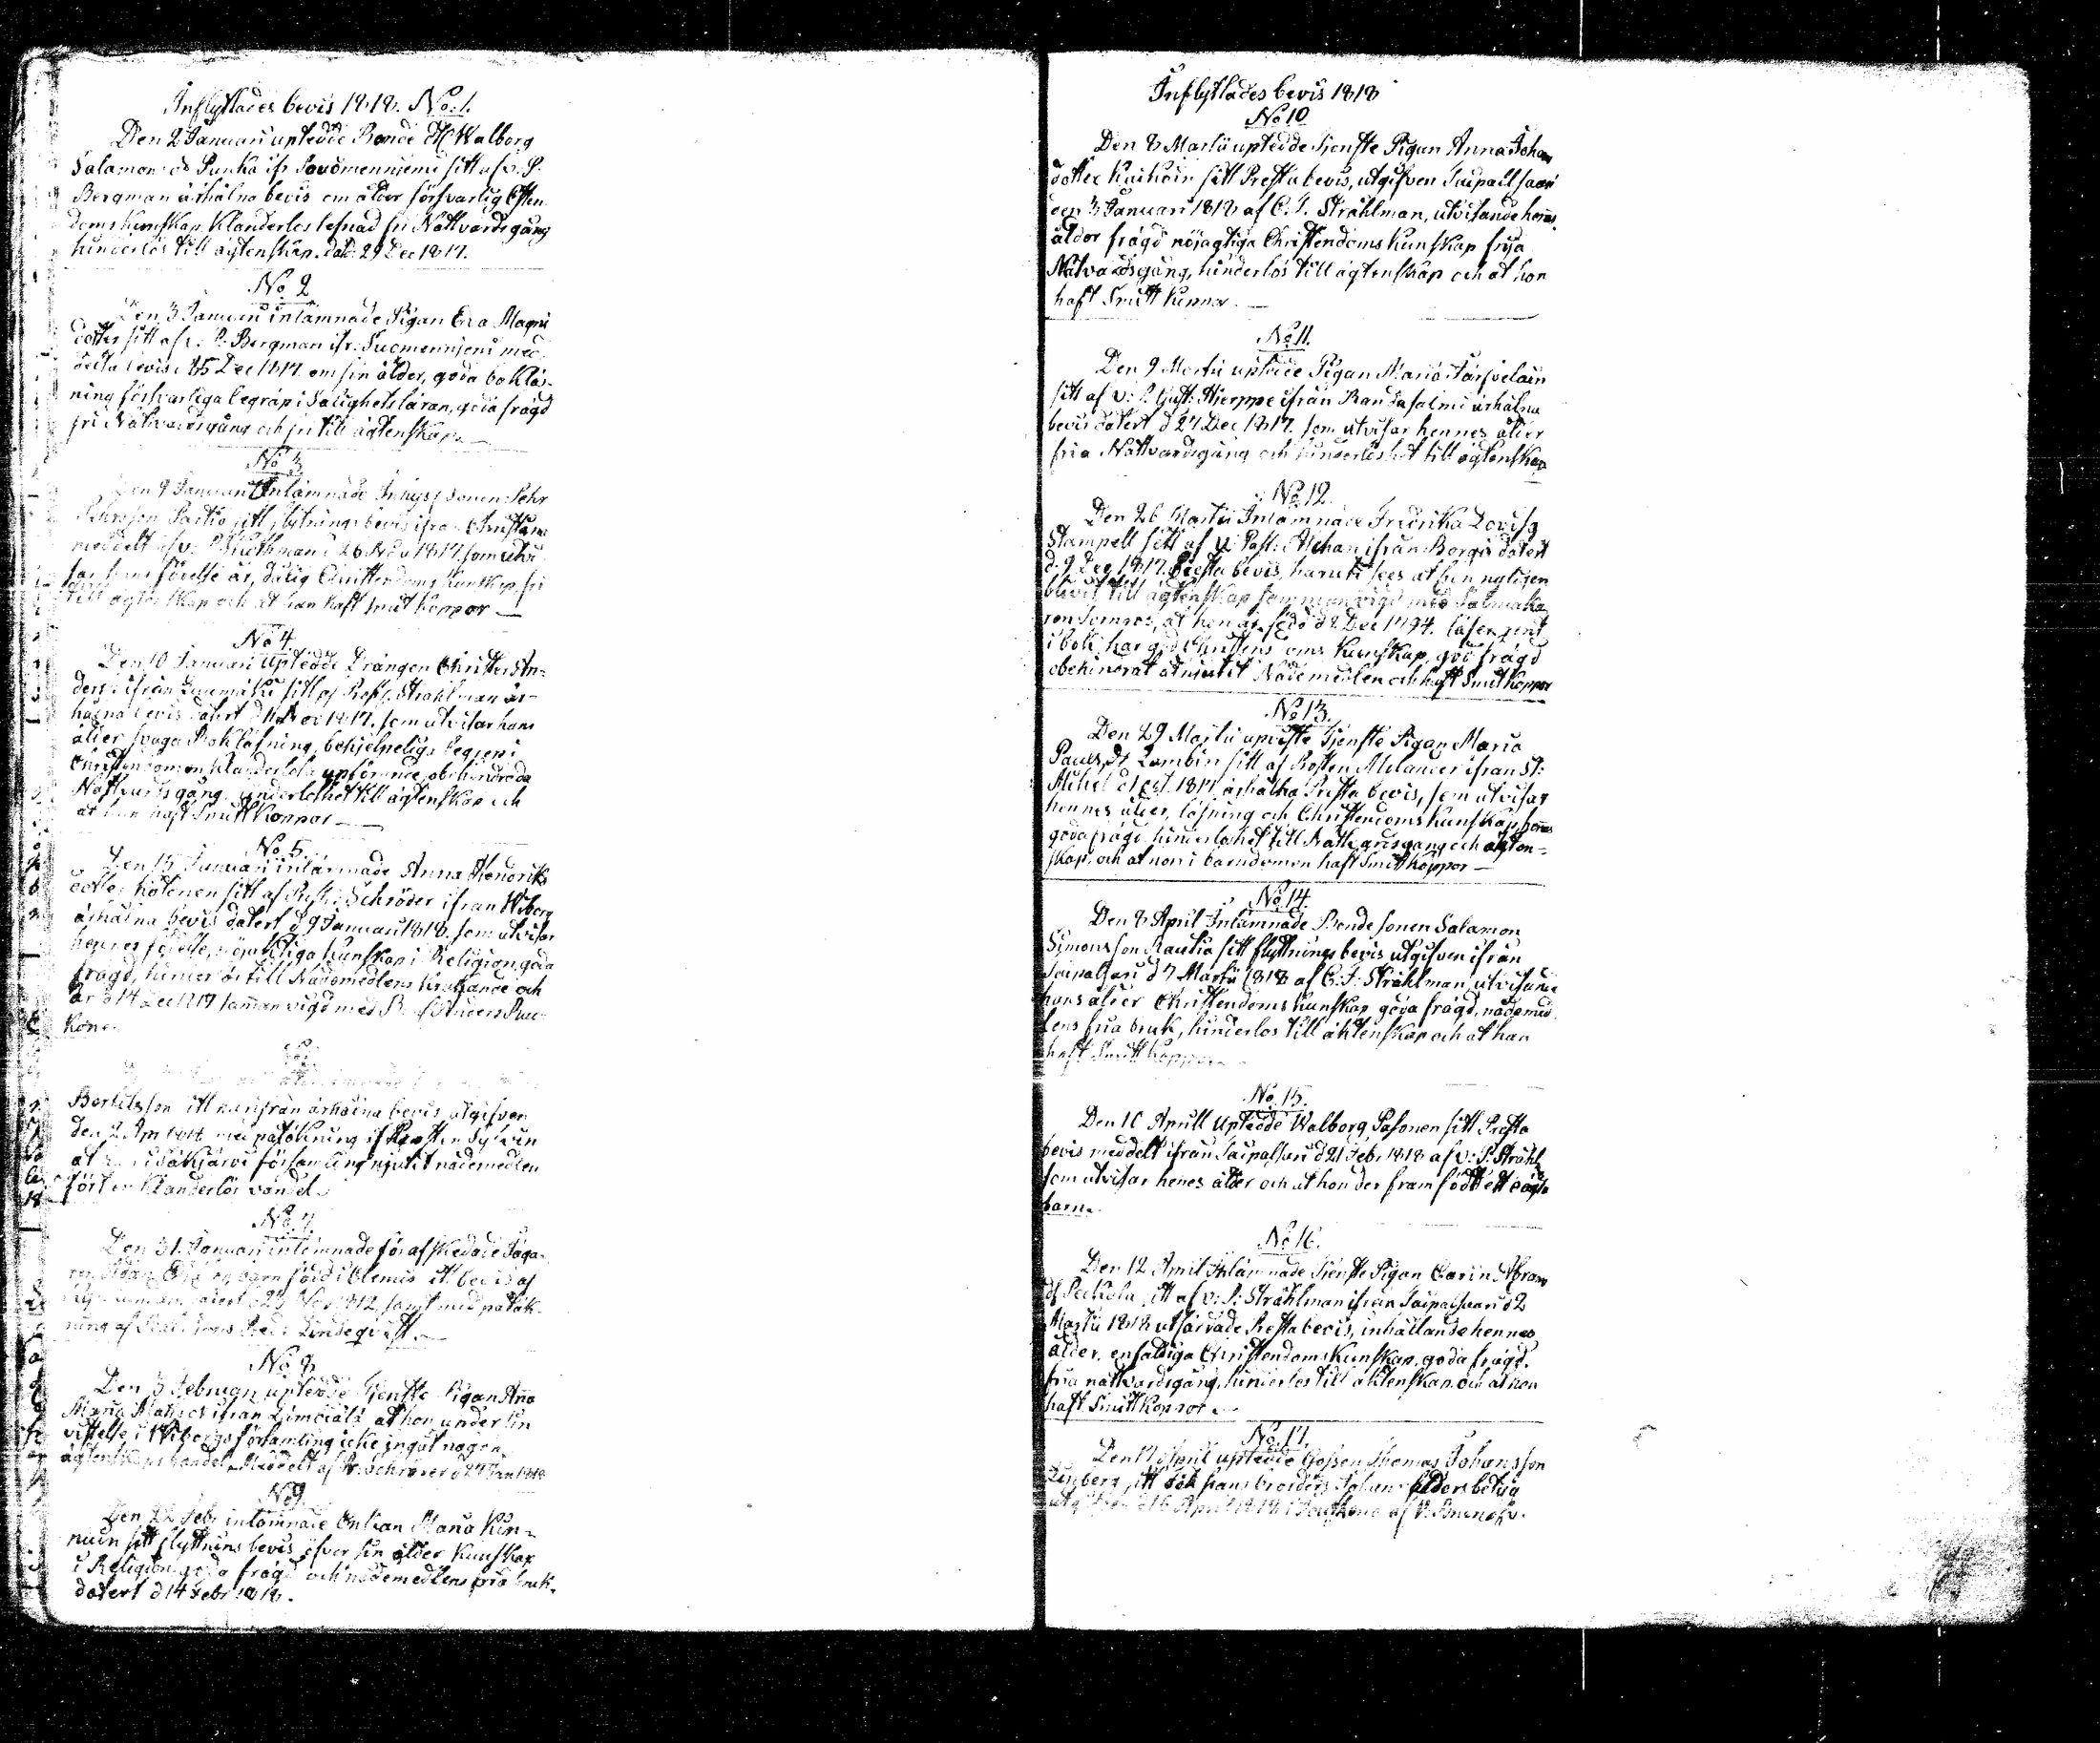 Inflyttades bevis 1818. No: 1.
Den 2 Januari uptedde Bonde H: Walborg
Salamons dr Punka ifr Suomenniemi sitt af v. P.
Bergman ärhålna bevis om ålder försvarlig Chten
doms kunskap Klanderlös lefnad fri Nattvardsgång
hinderlös till ägtenskap. dat: 29 Dec 1817.
No 2
Den 3 Januari inlämnade Pigan Eva Magni
dotter sitt af v. P. Bergman ifr: Suomenniemi med
delta bevis d 15 Dec 1817 om sin ålder, goda bokläs-
ning försvarliga begrep i Salighets läran, goda frägd
fri Nattvardsgång och fri till ägtenskap.
No 3
Den 9 Januari Inlämnade Inhyses sonen Pehr
Pehrsson Partio sitt flytnings bevis ifrån Christina
meddelt af v: P d 26 Nov 1817. som utvi
sar hans födelse år, dålig Christendoms kunskap fri
till ägtenskap och at han haft Smit koppor
No 4.
Den 10 Januari uptedde Drängen Christer An-
ders: ifrån sitt af Past. Strahlman är-
hålna bevis datert d Nov 1817. som utvisar hans
ålder svaga Bokläsning, behjelpeliga begrep i
Christendomen Klanderlösa upförande, obehindrada
Nattvardsgång. hinderlöshet till ägtenskap och
at han haft Smittkoppor
No 5.
Den 15 Januari inlämnade Anna Hendriks
dotter sitt af Past: Schröder ifrån Wiborg
ärhålna bevis datert d 9 Januari 1818, som utvisar
hennes födelse, nöjaktiga kunskap i Religion, goda
frägd, hinderlös till Nådemedlens och
är d 14 Dec 1817 samman vigd med B. Anders
kone.
Bertilsson sitt ärhålna bevis utgifven
den med påtekning af Prosten
at i Säkjärvi församling njutit nådemedlen
fört en Klanderlös vandel.
No. 7.
Den 31. Januari inlämnade för afskedade
född i Clemis bevis af
datert 1812, samt med påtek-
ning af Lindeqvist
No 8.
Den 3 Februari uptedde Tjenste Pigan Ana
Maria ifrån at hon under sin
vistelse i Wiborgs församling icke ingåt någon
ägtenskaps handel. Meddelt af Schröder d 27 Jan 1818
No 9.
Den 22 Febr inlämnade Enkan Maria Kin-
nuin sitt flyttnins bevis öfver sin ålder Kunskap
i Religion goda frägd och nådemedlens fria bruk.
datert d 14 Febr 1818.
Inflyttades bevis 1818
No 10
Den 8 Martii uptedde Tjenste Pigan Anna Johan
dotter Kaihoin sitt Presta bevis, utgifven Taipallsaari
den 3 Januari 1818 af C. J. Strählman, utvisande hens
ålder frägd nöjagtiga Christendoms Kunskap fria
Natvardsgång, hinderlös till ägtenskap och at hon
haft Smitt kuppor.
No 11.
Den 9 Martii uptedde Pigan Maria Järvelain
sitt af v: P. Gust: Hierppe ifrån Randasalmi ärhålna
bevis datert d 27 Dec 1817. som utvisar hennes ålder
fria Nattvardsgång och hinderlöshet till ägtenskap
No 12.
Den 26 Martii Inlämnade Fredrika Lovisa
Stampell sitt af v: Past: Alchan ifrån Borgå datert
d. 9 Dec 1817. Presta bevis, haruti sees at hen nyligen
blivit till ägtenskap samman vigd med Salmaka
ren at hon är född d 2 Dec 1794. läser rent
i bok, har god Christendoms kunskap, god frägd
obehindrat at njutit Nådemedlen och haft Smitkoppor
No 13.
Den 29 Martii upviste Tjenste Pigan Maria
Pauls dr Lambin sitt af Prosten Melander ifrån St:
Michel d 1 Oct. 1817 ärhålna Presta bevis, som utvisar
hennes ålder, läsning och Christendoms kunskap, hens
goda frägd, hinderlöshet till Nattvardsgång och ägten-
skap och at hon i barndomen haft Smitkoppor
No 14.
Den 8 April Inlämnade Bonde sonen Salamon
Simonsson Rautia sitt flyttnings bevis utgifven ifrån
Taipalsari d 7 Martii 1818 af C: J: Strählman, utvisande
hans ålder Christendoms kunskap goda frägd, nådemed
lens fria bruk, hinderlös till äktenskap och at han
haft Smitt koppor.
No. 15.
Den 10 Aprill Uptedde Walborg Pasonen sitt Presta
bevis meddelt ifrån Taipalsari d 21 Febr 1818 af v: P. Strähl
som utvisar henes ålder och at hon der framfödt ett oägta
barn.
No 16.
Den 12 April Inlämnade Tjenste Pigan Carin Abram
dr Peckola sitt af v: P: Strählman ifrån Taipalsari d 2
Martii 1818 utfärdade Presta bevis, inhållande hennes
ålder, enfaldiga Christendoms Kunskap, goda frägd,
fria nattvardsgång, hinderlös till äktenskap och at hon
haft Smittkoppor.
No. 17.
Den 17 April uptedde Gossen Thomas Johansson
Linberg sitt och hans broders Johan ålders betyg
utgifven d 16 April 1818 i af v.